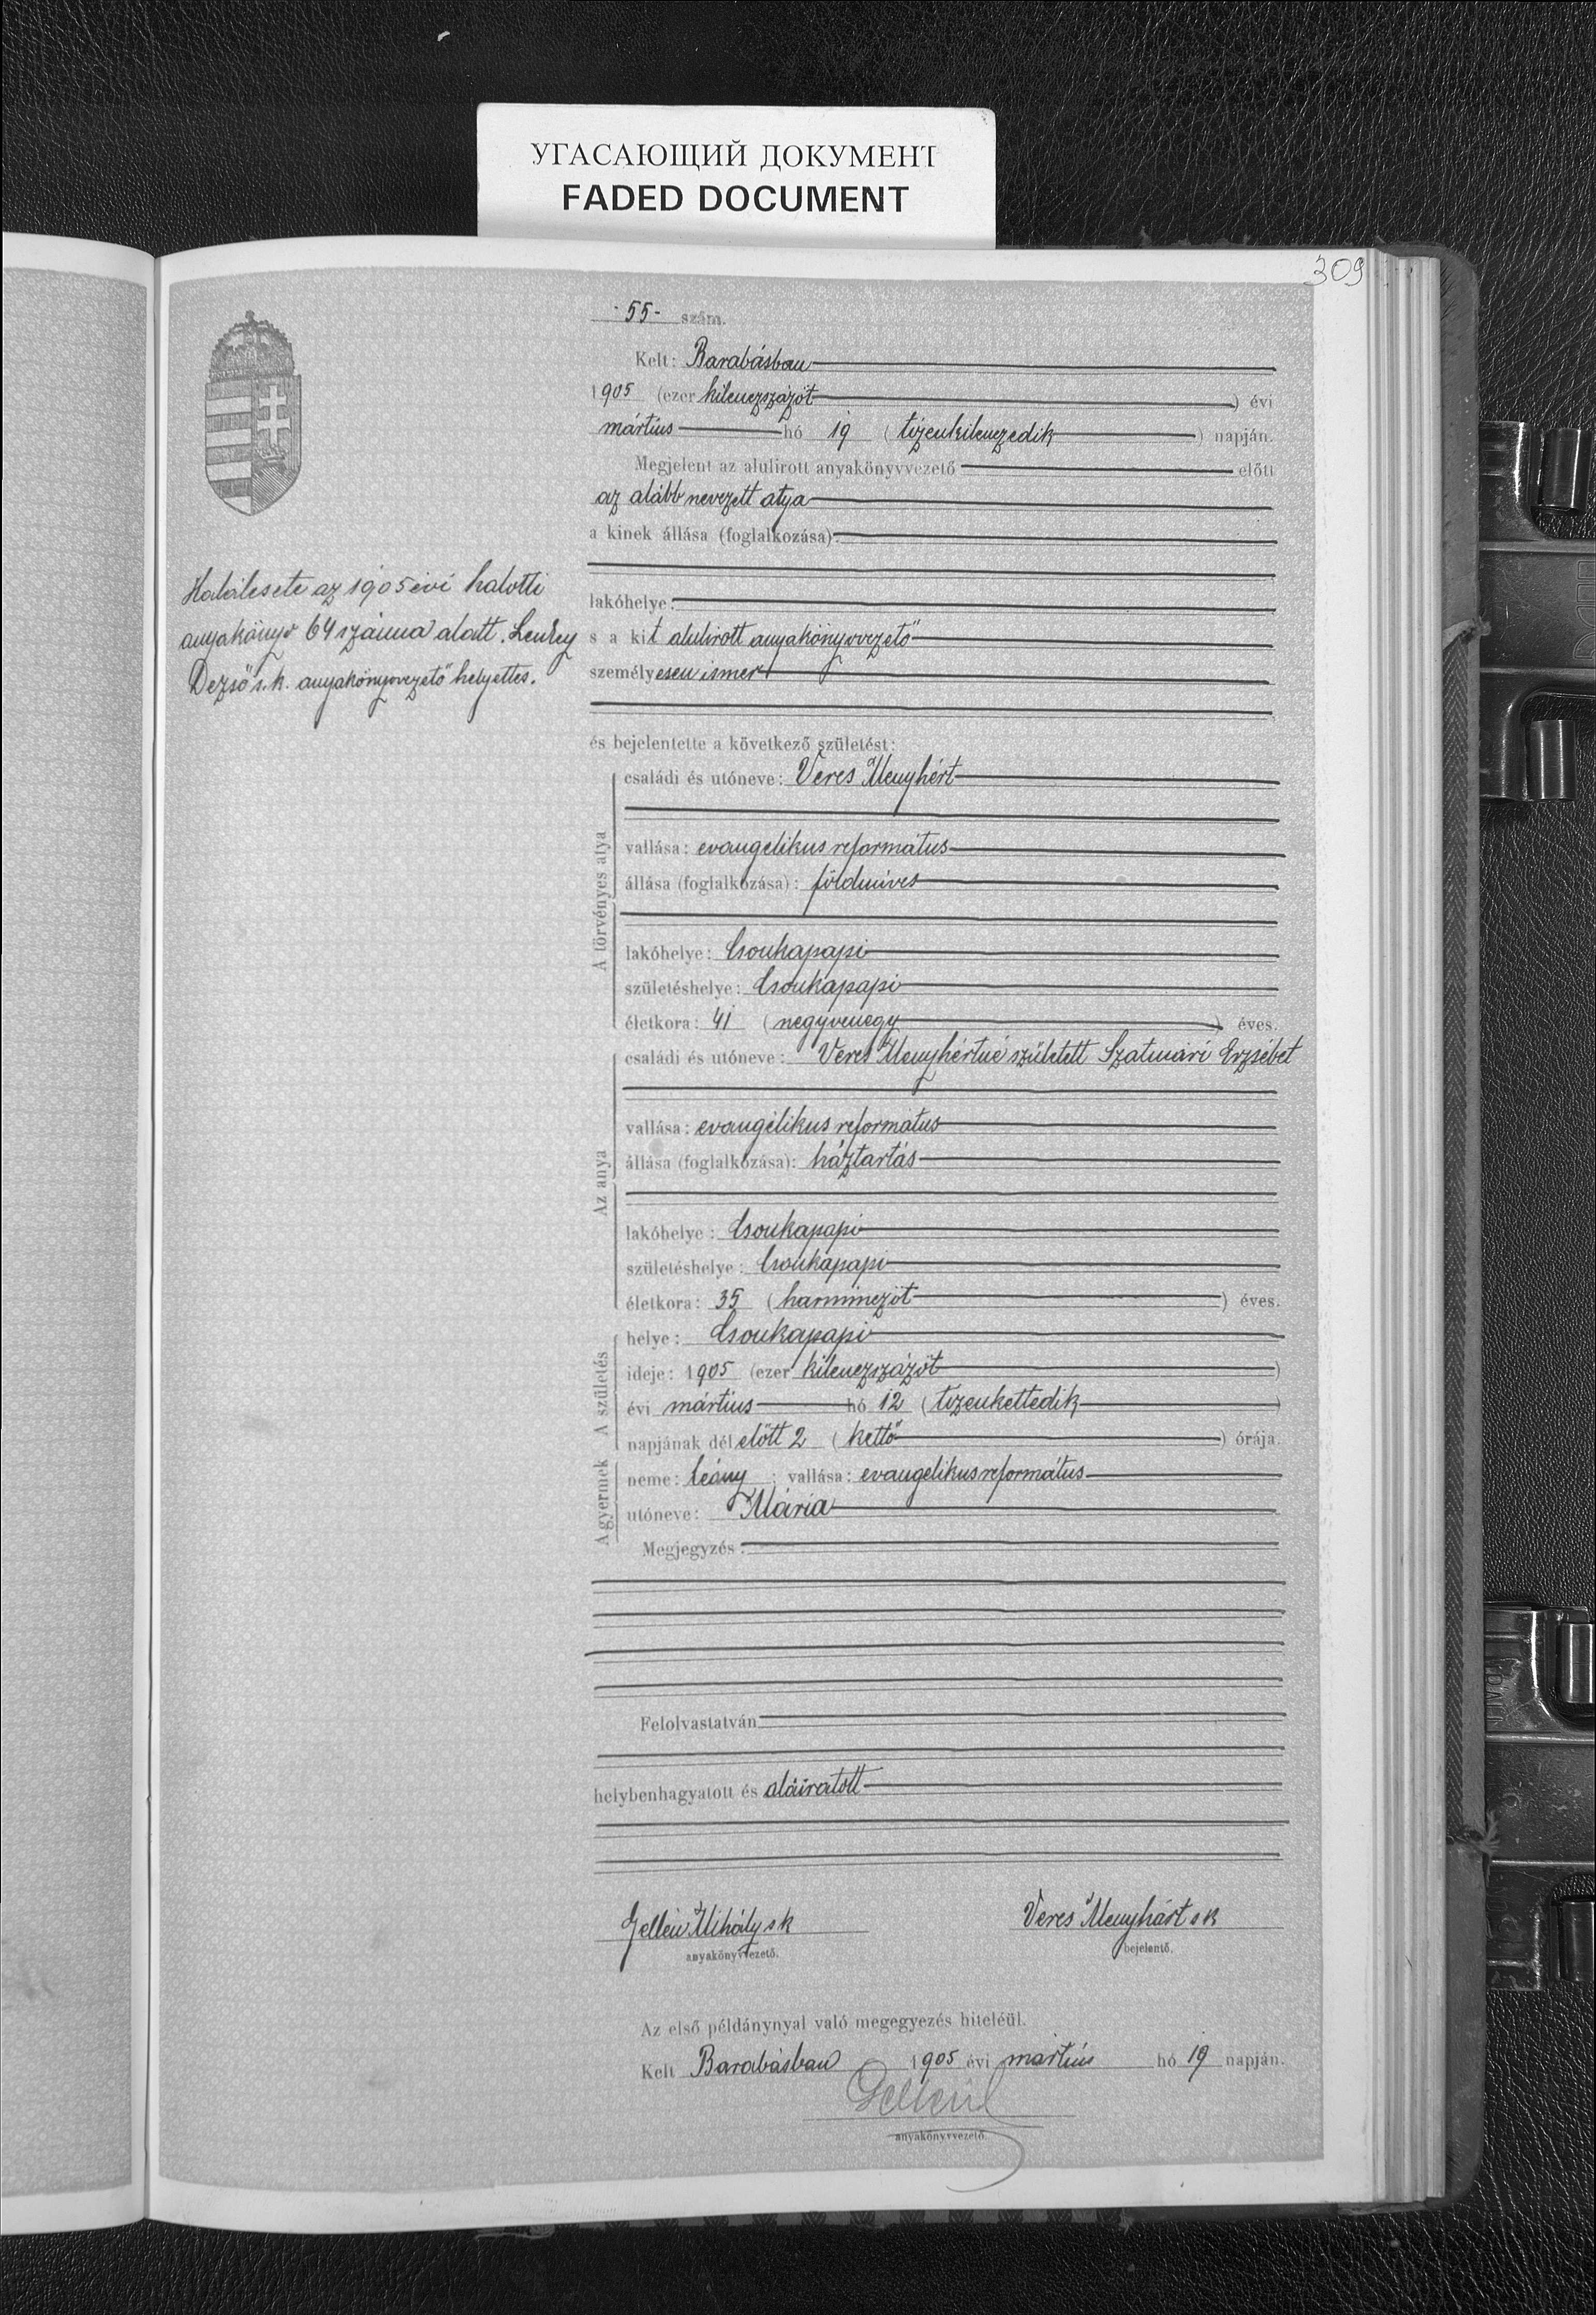 УГАСАЮЩИЙ ДОКУМЕНТ
FADED DOCUMENT
309
-55- szám.
Kelt: Barabásban
1905 (ezer kilenczszázöt) évi
mártius hó 19 (tizenkilenczedik) napján.
Megjelent az alulirott anyakönyvvezető előtt
az alább nevezett atya
a kinek állása (foglalkozása):
lakóhelye:
s a kit alulirott anyakönyvvezető
személyesen ismer
Halálesete az 1905 évi halotti
anyakönyv 64 száma alatt.
Dezső s.k. anyakönyvvezető helyettes.
és bejelentette a következő születést:
A törvényes atya
családi és utóneve: Veres Menyhért
vallása: evangelikus református
állása (foglalkozása): földmíves
lakóhelye: Csonkapapi
születéshelye: Csonkapapi
életkora: 41 (negyvenegy) éves.
Az anya
családi és utóneve: Veres Menyhértné született Szatmári Erzsébet
vallása: evangélikus református
állása (foglalkozása): háztartás
lakóhelye: Csonkapapi
születéshelye: Csonkapapi
életkora: 35 (harminczöt) éves.
A születés
helye: Csonkapapi
ideje: 1905 (ezer kilenczszázöt)
évi mártius hó 12 (tizenkettedik)
napjának dél előtt 2 (kettő) órája.
A gyermek
neme: leány; vallása: evangelikus református
utóneve: Mária
Megjegyzés:
Felolvastatván
helybenhagyatott és aláiratott
Gellén Mihály sk Veres Menyhárt sk
anyakönyvvezető. bejelentő.
Az első példánynyal való megegyezés hiteléül.
Kelt Barabásban 1905 évi martius hó 19 napján.
anyakönyvvezető.